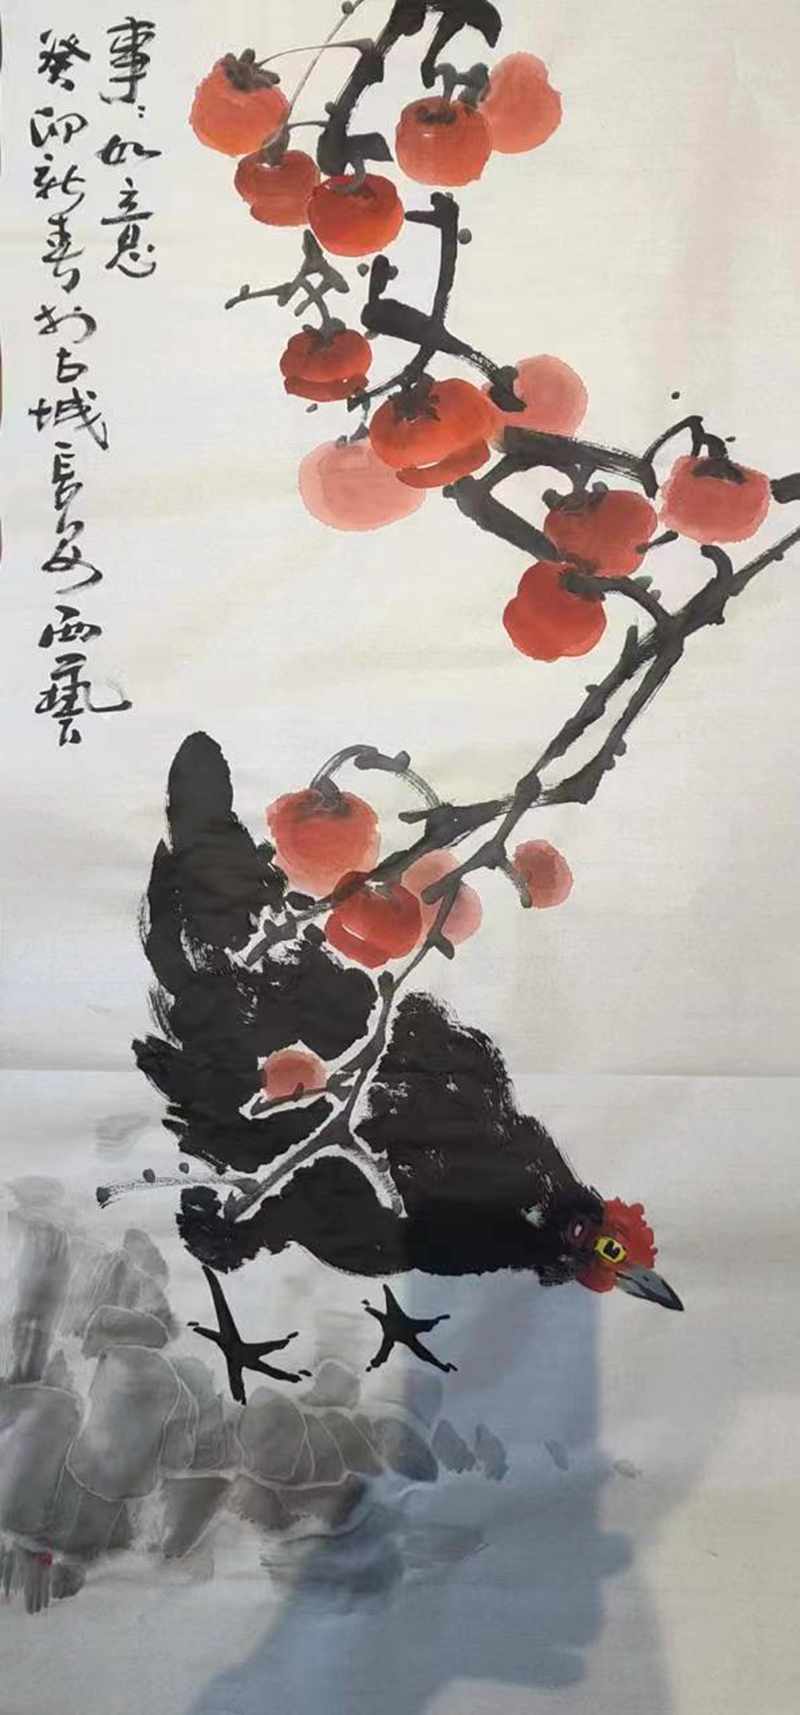 事:如意
癸卯新春于古城長安西藝